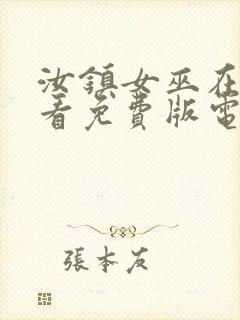 汝鎮女巫在
看免費版電
張本友